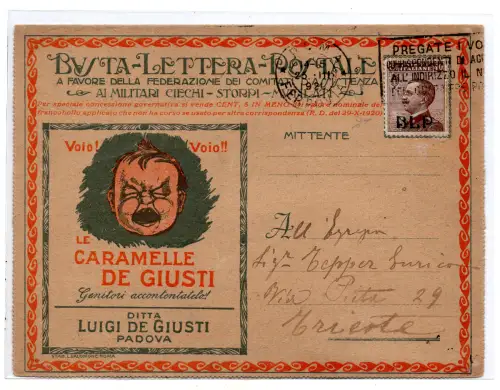 BVSTA-LETTERA-POSTALE
A FAVORE DELLA FEDERAZIONE DEI COMITATI
AI MILITARI CIECHI - STORPI -
Per speciale concessione governativa si vende CENT. 5 IN MENO del
francobollo applicato che non ha corso se usato per altra corrispondenza (R. D. del 29-X-1920)
PREGATE I VO
CORRISPONDENTI DI
ALL'INDIRIZZO IL N
B.L.P.
MITTENTE
Voio! Voio!!
LE
CARAMELLE
DE GIUSTI
Genitori accontentatelo!
DITTA
LUIGI DE GIUSTI
PADOVA
All
Sigr Tepper Enrico
Via 29
Trieste